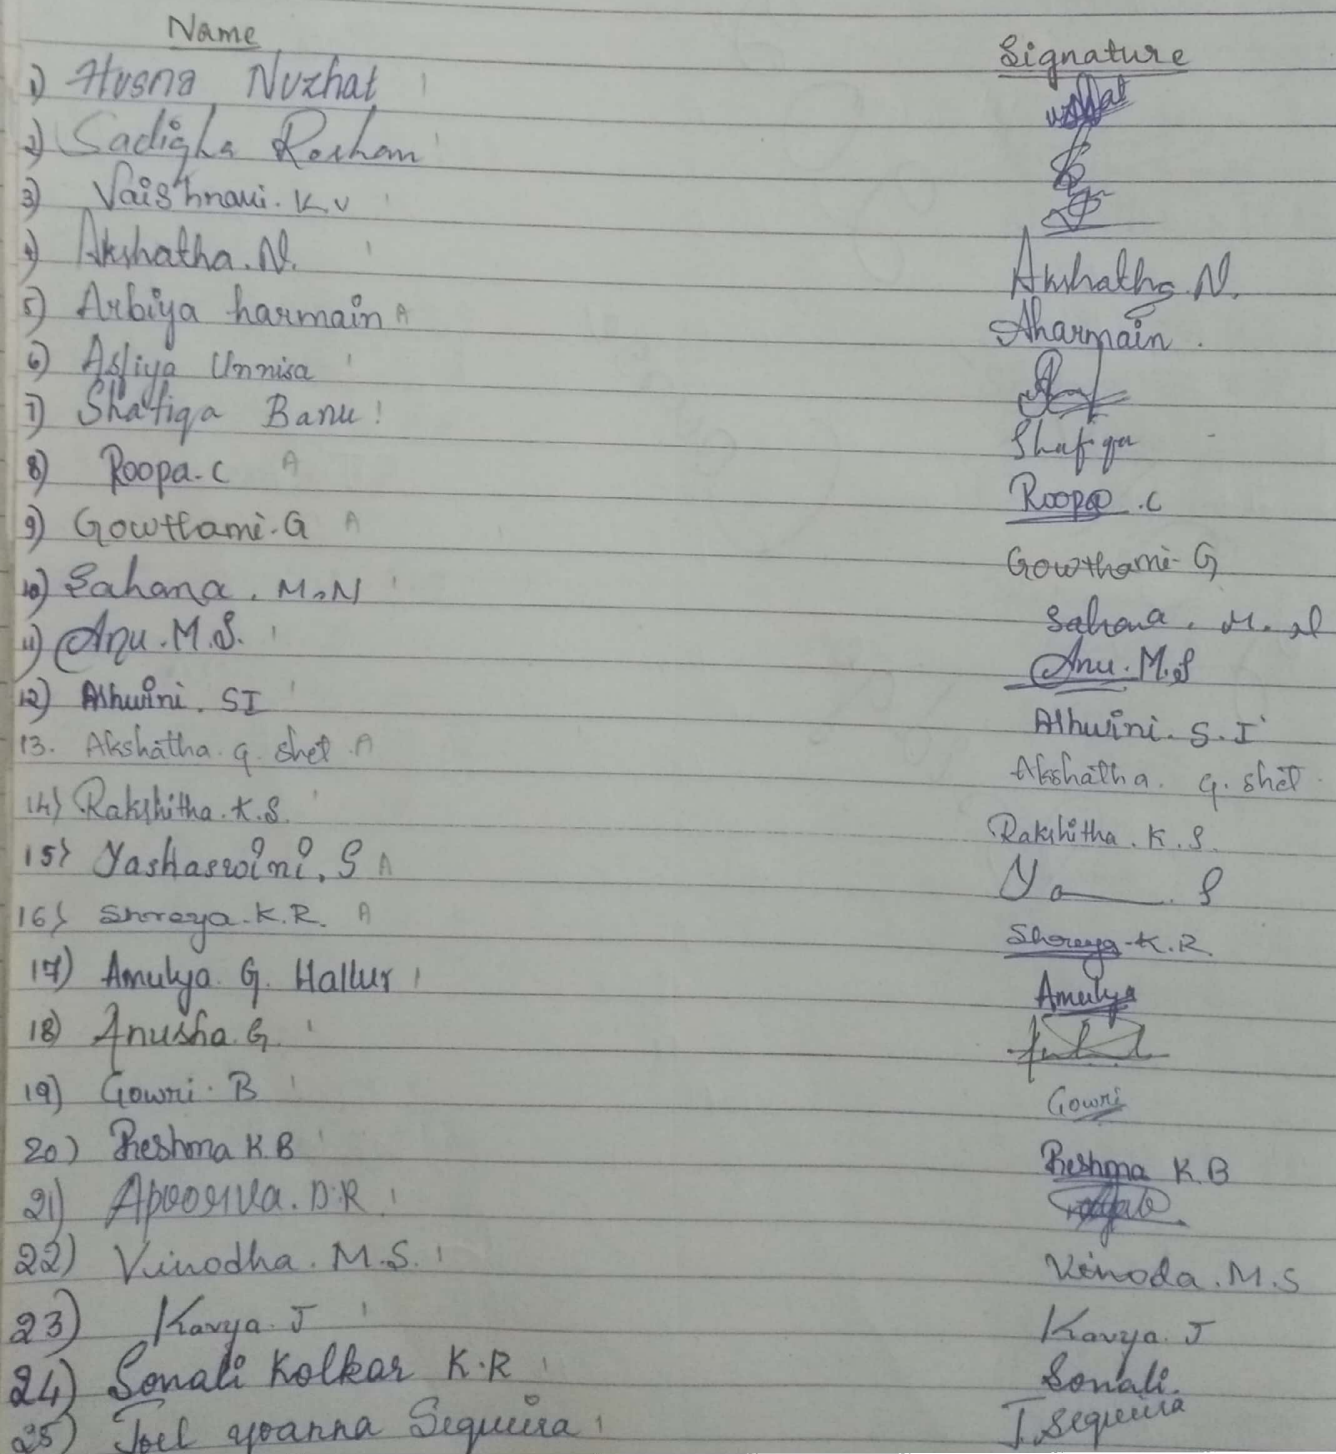 Name Signature
1) Husna Nuzhat
2) Sadiqha Roshan
3) Vaishnavi. K.V
4) Akshatha. N. Akshatha. N.
5) Arbiya harmain A Aharmain.
6) Asfiya Unnisa
7) Shafiqa Banu Shafiqa
8) Roopa. C A Roopa. C
9) Gowthami. G A Gowthami- G
10) Sahana. M.N Sahana. M. N
11) Anu. M. S. Anu. M.S
12) Ashwini. SI Ashwini. S. I
13. Akshatha. g. shet A Akshatha. g. shet
14) Rakshitha. K.S. Rakshitha. K. S.
15) Yashaswini. S A Ya S
16) Shreya. K.R. A Shreya. K.R
17) Amulya G. Hallur Amulya
18) Anusha. G
19) Gowri. B Gowri
20) Reshma K.B Reshma K.B
21) Apoorva. D.R.
22) Vinodha. M.S. Vinoda. M.S
23) Kavya. J Kavya. J
24) Sonali Kolkar K.R Sonali.
25) Joel yoanna Sequeira J. Sequeira